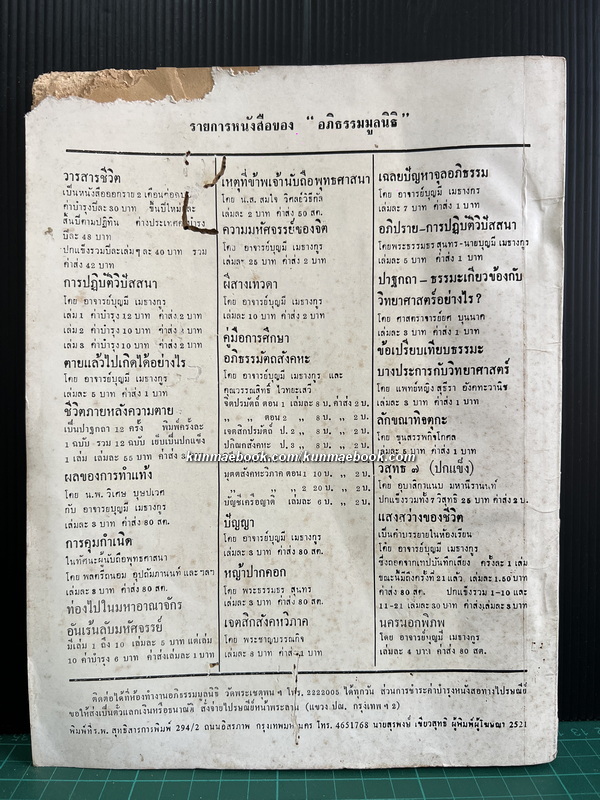 รายการหนังสือของ "อภิธรรมมูลนิธิ"
วารสารชีวิต
เป็นหนังสือออกราย 2 เดือนต่อ
ค่าบำรุงปีละ 30 บาท ขึ้นปีใหม่
สิ้นปีตามปฏิทิน ต่างประเทศ บำรุง
ปีละ 48 บาท
ปกแข็งรวมปีละเล่มๆ ละ 40 บาท รวม
ค่าส่ง 42 บาท
การปฏิบัติวิปัสสนา
โดย อาจารย์บุญมี เมธางกูร
เล่ม 1 ค่าบำรุง 12 บาท ค่าส่ง 2 บาท
เล่ม 2 ค่าบำรุง 10 บาท ค่าส่ง 2 บาท
เล่ม 3 ค่าบำรุง 10 บาท ค่าส่ง 2 บาท
ตายแล้วไปเกิดได้อย่างไร
โดย อาจารย์บุญมี เมธางกูร
เล่มละ 5 บาท ค่าส่ง 1 บาท
ชีวิตภายหลังความตาย
เป็นปาฐกถา 12 ครั้ง พิมพ์ครั้งละ
1 ฉบับ รวม 12 ฉบับ เย็บเป็นปกแข็ง
1 เล่ม เล่มละ 55 บาท ค่าส่ง 3 บาท
ผลของการทำแท้ง
โดย น.พ. วิเศษ บุษปเวศ
กับ อาจารย์บุญมี เมธางกูร
เล่มละ 3 บาท ค่าส่ง 80 สต.
การคุมกำเนิด
ในทัศนะผู้นับถือพุทธศาสนา
โดย พลตรีถนอม อุปถัมภานนท์ และฯลฯ
เล่มละ 3 บาท ค่าส่ง 80 สต.
ท่องไปในมหาอาณาจักร
อันเร้นลับมหัศจรรย์
มีเล่ม 1 ถึง 10 เล่มละ 5 บาท แต่เล่ม
10 ค่าบำรุง 6 บาท ค่าส่งเล่มละ 1 บาท
เหตุที่ข้าพเจ้านับถือพุทธศาสนา
โดย น.ส. สมใจ วิศลย์วิธีกัล
เล่มละ 2 บาท ค่าส่ง 50 สต.
ความมหัศจรรย์ของจิต
โดย อาจารย์บุญมี เมธางกูร
เล่มละ 25 บาท ค่าส่ง 2 บาท
ผีสางเทวดา
โดย อาจารย์บุญมี เมธางกูร
เล่มละ 10 บาท ค่าส่ง 2 บาท
คู่มือการศึกษา
อภิธรรมัตถสังคหะ
โดย อาจารย์บุญมี เมธางกูร และ
คุณวรรณสิทธิ์ ไวทยะเสวี
จิตปรมัตถ์ ตอน 1 เล่มละ 8 บ. ค่าส่ง 2 บ.
,, ตอน 2 ,, 8 บ. ,, 2 บ.
เจตสิกปรมัตถ์ ป. 2 ,, 8 บ. ,, 2 บ.
ปกิณกสังคหะ ป. 3 ,, 8 บ. ,, 2 บ.
kunmaebook.com/kunmaebook.com
มุตตสังคหะวิภาค ตอน 1 10 บ. ,, 2 บ.
,, ,, 2 20 บ. ,, 2 บ.
บัญชีเครือญาติ เล่มละ 6 บ. ,, 2 บ.
ปัญญา
โดย อาจารย์บุญมี เมธางกูร
เล่มละ 3 บาท ค่าส่ง 80 สต.
หญ้าปากคอก
โดย พระธรรมธร สุนทร
เล่มละ 3 บาท ค่าส่ง 80 สต.
เจตสิกสังคหวิภาค
โดย พระชาญบรรณกิจ
เล่มละ 8 บาท ค่าส่ง 1 บาท
เฉลยปัญหาจุลอภิธรรม
โดย อาจารย์บุญมี เมธางกูร
เล่มละ 7 บาท ค่าส่ง 1 บาท
อภิปราย–การปฏิบัติวิปัสสนา
โดยพระธรรมธรสุนทร-นายบุญมี เมธางกูร
เล่มละ 5 บาท ค่าส่ง 1 บาท
ปาฐกถา – ธรรมะเกี่ยวข้องกับ
วิทยาศาสตร์อย่างไร ?
โดย ศาสตราจารย์ยศ บุนนาค
เล่มละ 3 บาท ค่าส่ง 1 บาท
ข้อเปรียบเทียบธรรมะ
บางประการกับวิทยาศาสตร์
โดย แพทย์หญิง สุธีรา อังศทะวานิช
เล่มละ 3 บาท ค่าส่ง 1 บาท
ลักขณาทิจตุกะ
โดย ขุนสรรพกิจโกศล
เล่มละ 5 บาท ค่าส่ง 1 บาท
วิสุทธิ ๗ (ปกแข็ง)
โดย อุบาสิกาแนบ มหานีรานนท์
ปกแข็งรวมทั้ง ๗ วิสุทธิ 25 บาท ค่าส่ง 2 บ.
แสงสว่างของชีวิต
เป็นคำบรรยายในห้องเรียน
โดย อาจารย์บุญมี เมธางกูร
ซึ่งถอดจากเทปบันทึกเสียง ครั้งละ 1 เล่ม
ขณะนี้มีถึงครั้งที่ 21 แล้ว เล่มละ 1.50 บาท
ค่าส่ง 80 สต. ปกแข็งรวม 1-10 และ
11-21 เล่มละ 30 บาท ค่าส่งเล่มละ 3 บาท
นครนอกพิภพ
โดย อาจารย์บุญมี เมธางกูร
เล่มละ 4 บาท ค่าส่ง 80 สต.
ติดต่อได้ที่ห้องทำงานอภิธรรมมูลนิธิ วัดพระเชตุพน ฯ โทร. 2222005 ได้ทุกวัน ส่วนการชำระค่าบำรุงหนังสือทางไปรษณีย์
ขอให้ส่งเป็นตั๋วแลกเงินหรือธนาณัติ สั่งจ่ายไปรษณีย์หน้าพระลาน (แขวง ปณ. กรุงเทพ ฯ 2)
พิมพ์ที่ ร.พ. สุทธิสารการพิมพ์ 294/2 ถนนอิสรภาพ กรุงเทพมหานคร โทร. 4651768 นายสุรพงษ์ เขียวสุทธิ ผู้พิมพ์ผู้โฆษณา 2521